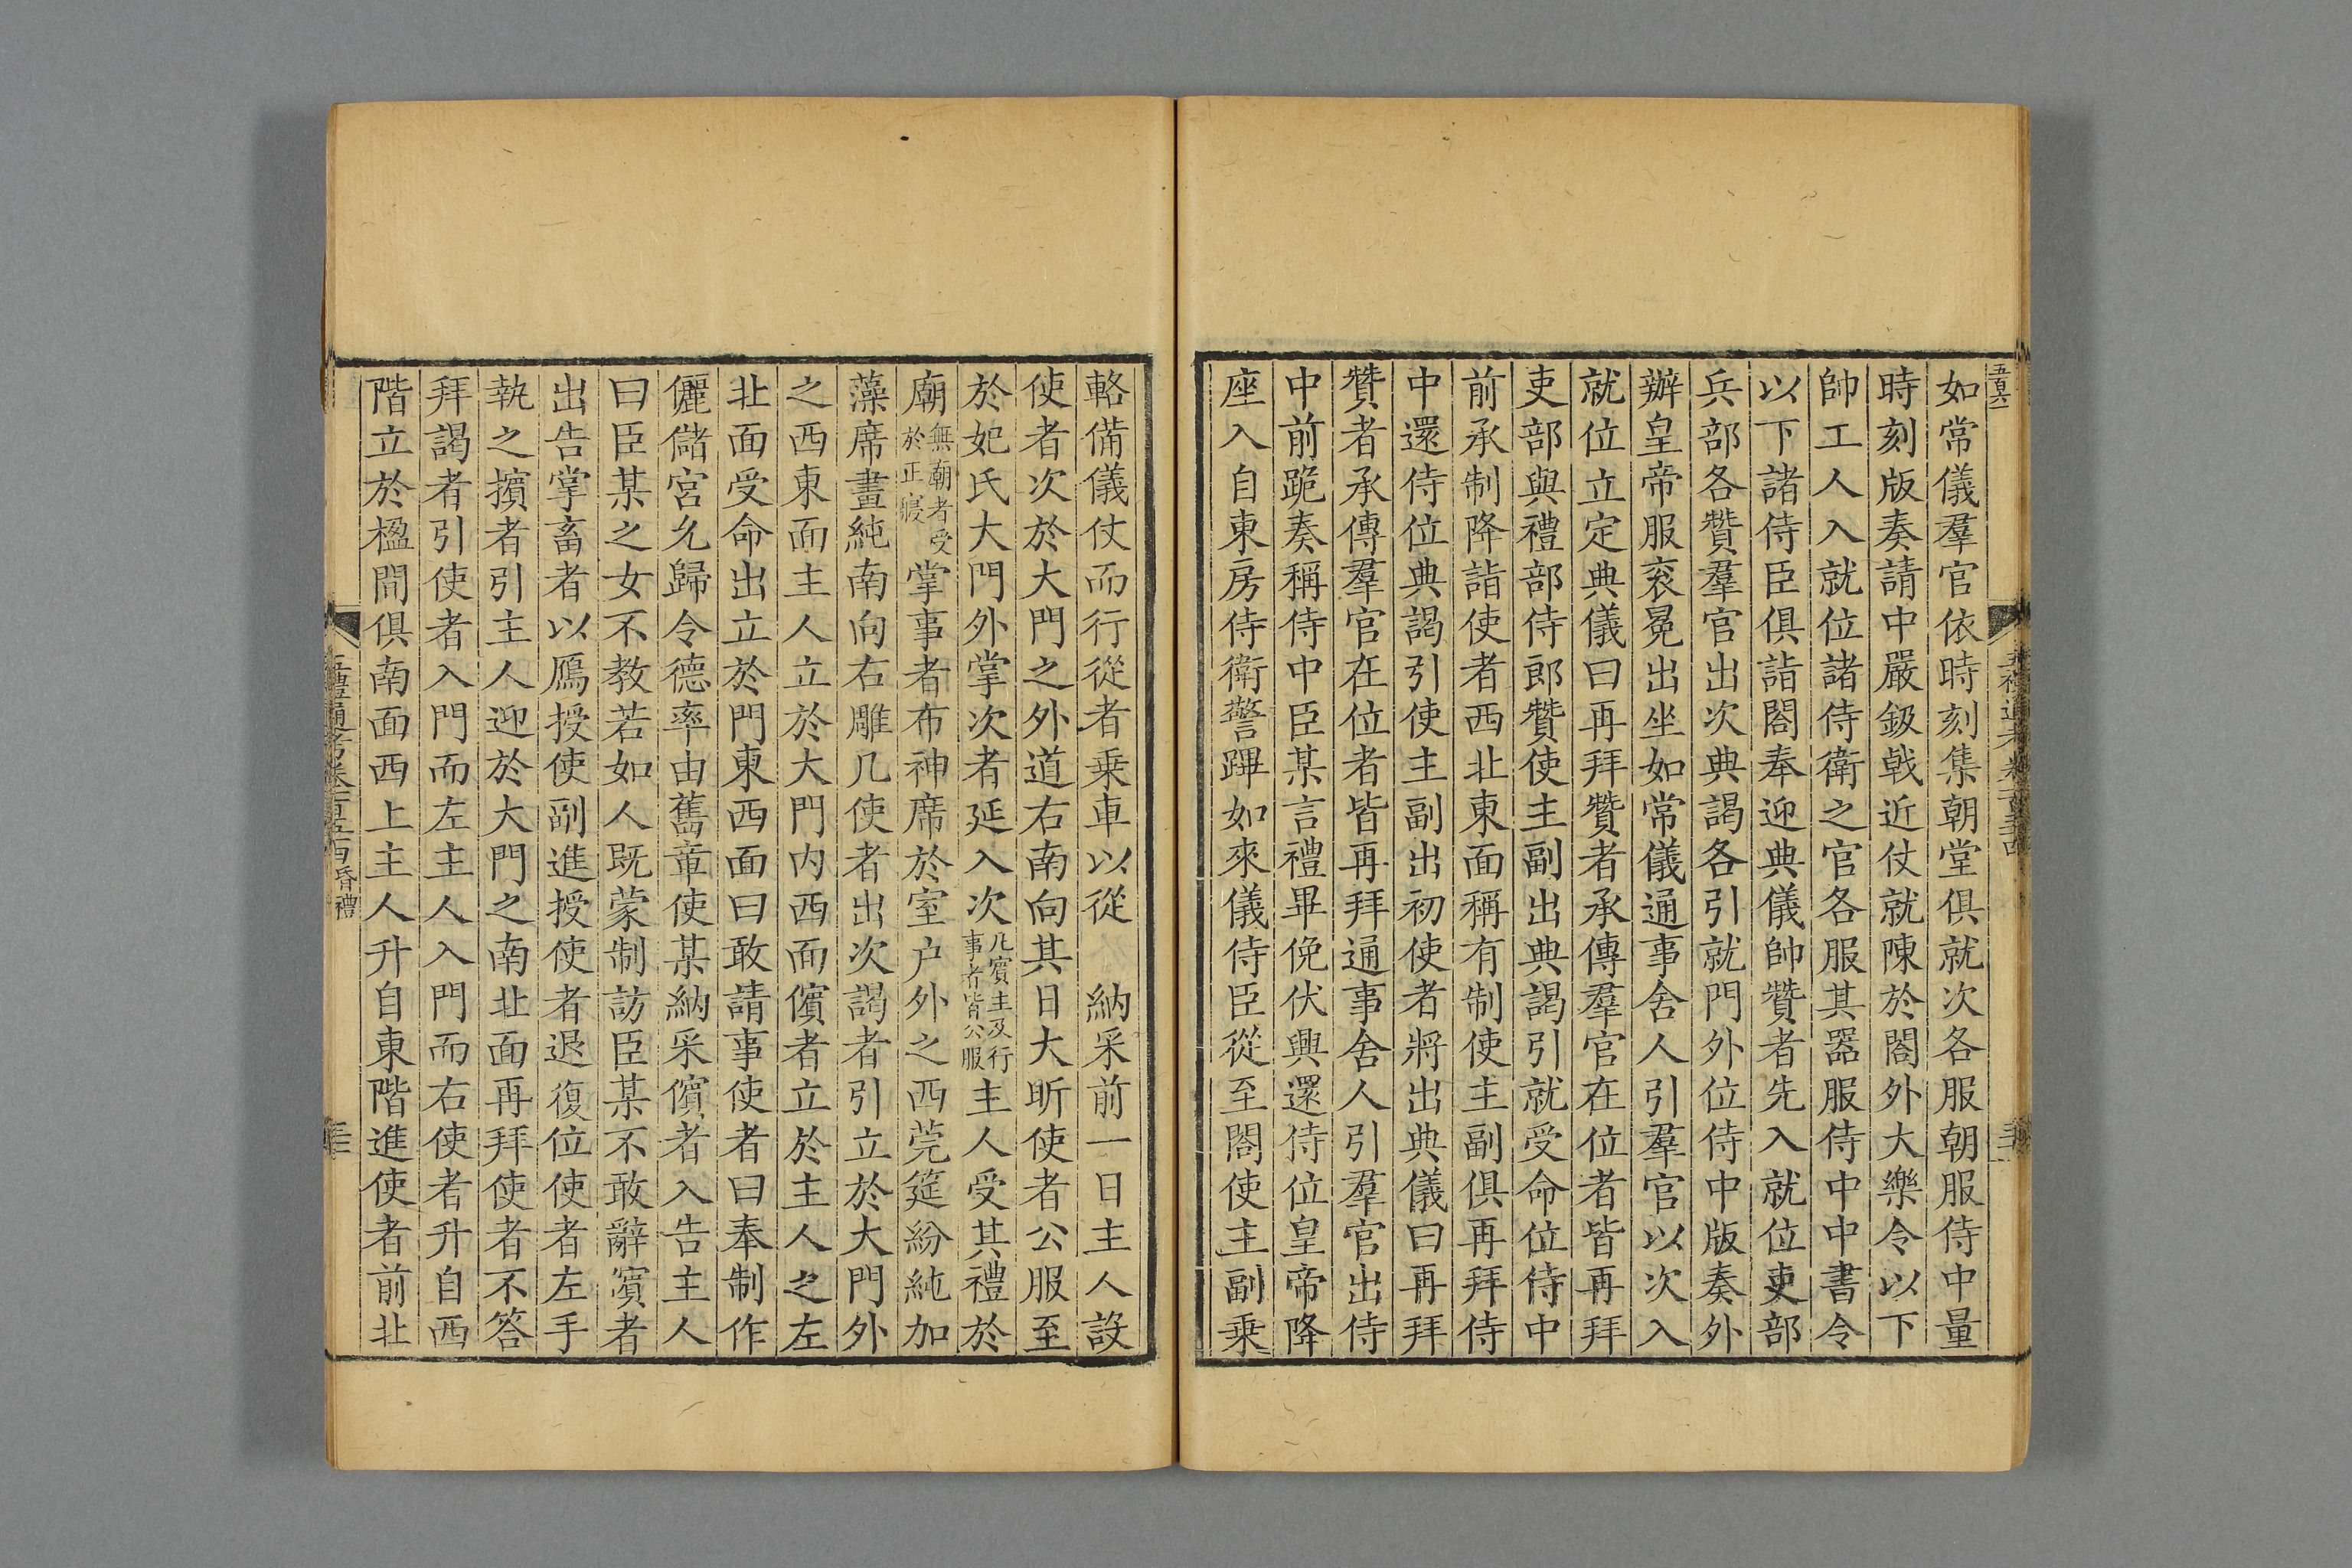 如常儀羣官依時刻集朝堂俱就次各服朝服侍中量
時刻版奏請中嚴鈒戟近仗就陳於閤外大樂令以下
帥工人入就位諸侍衛之官各服其器服侍中中書令
以下諸侍臣俱詣閤奉迎典儀帥贊者先入就位吏部
兵部各贊羣官出次典謁各引就門外位侍中版奏外
辦皇帝服衮冕出坐如常儀通事舍人引羣官以次入
就位立定典儀曰再拜贊者承傳羣官在位者皆再拜
吏部與禮部侍郎贊使主副出典謁引就受命位侍中
前承制降詣使者西北東面稱有制使主副俱再拜侍
中還侍位典謁引使主副出初使者將出典儀曰再拜
贊者承傳羣官在位者皆再拜通事舍人引羣官出侍
中前跪奏稱侍中臣某言禮畢俛伏興還侍位皇帝降
座入自東房侍衛警蹕如來儀侍臣從至閤使主副乗
輅備儀仗而行從者乗車以從　納采前一日主人設
使者次於大門之外道右南向其日大昕使者公服至
於妃氏大門外掌次者延入次凡賓主及行事者皆公服主人受其禮於
廟無廟者受於正寢掌事者布神席於室户外之西莞筵紛純加
藻席畫純南向右雕几使者出次謁者引立於大門外
之西東面主人立於大門内西面儐者立於主人之左
北面受命出立於門東西面曰敢請事使者曰奉制作
儷儲宮允歸令德率由舊章使某納采儐者入告主人
曰臣某之女不教若如人既蒙制訪臣某不敢辭儐者
出告掌畜者以鴈授使副進授使者退復位使者左手
執之擯者引主人迎於大門之南北面再拜使者不答
拜謁者引使者入門而左主人入門而右使者升自西
階立於楹間俱南面西上主人升自東階進使者前北